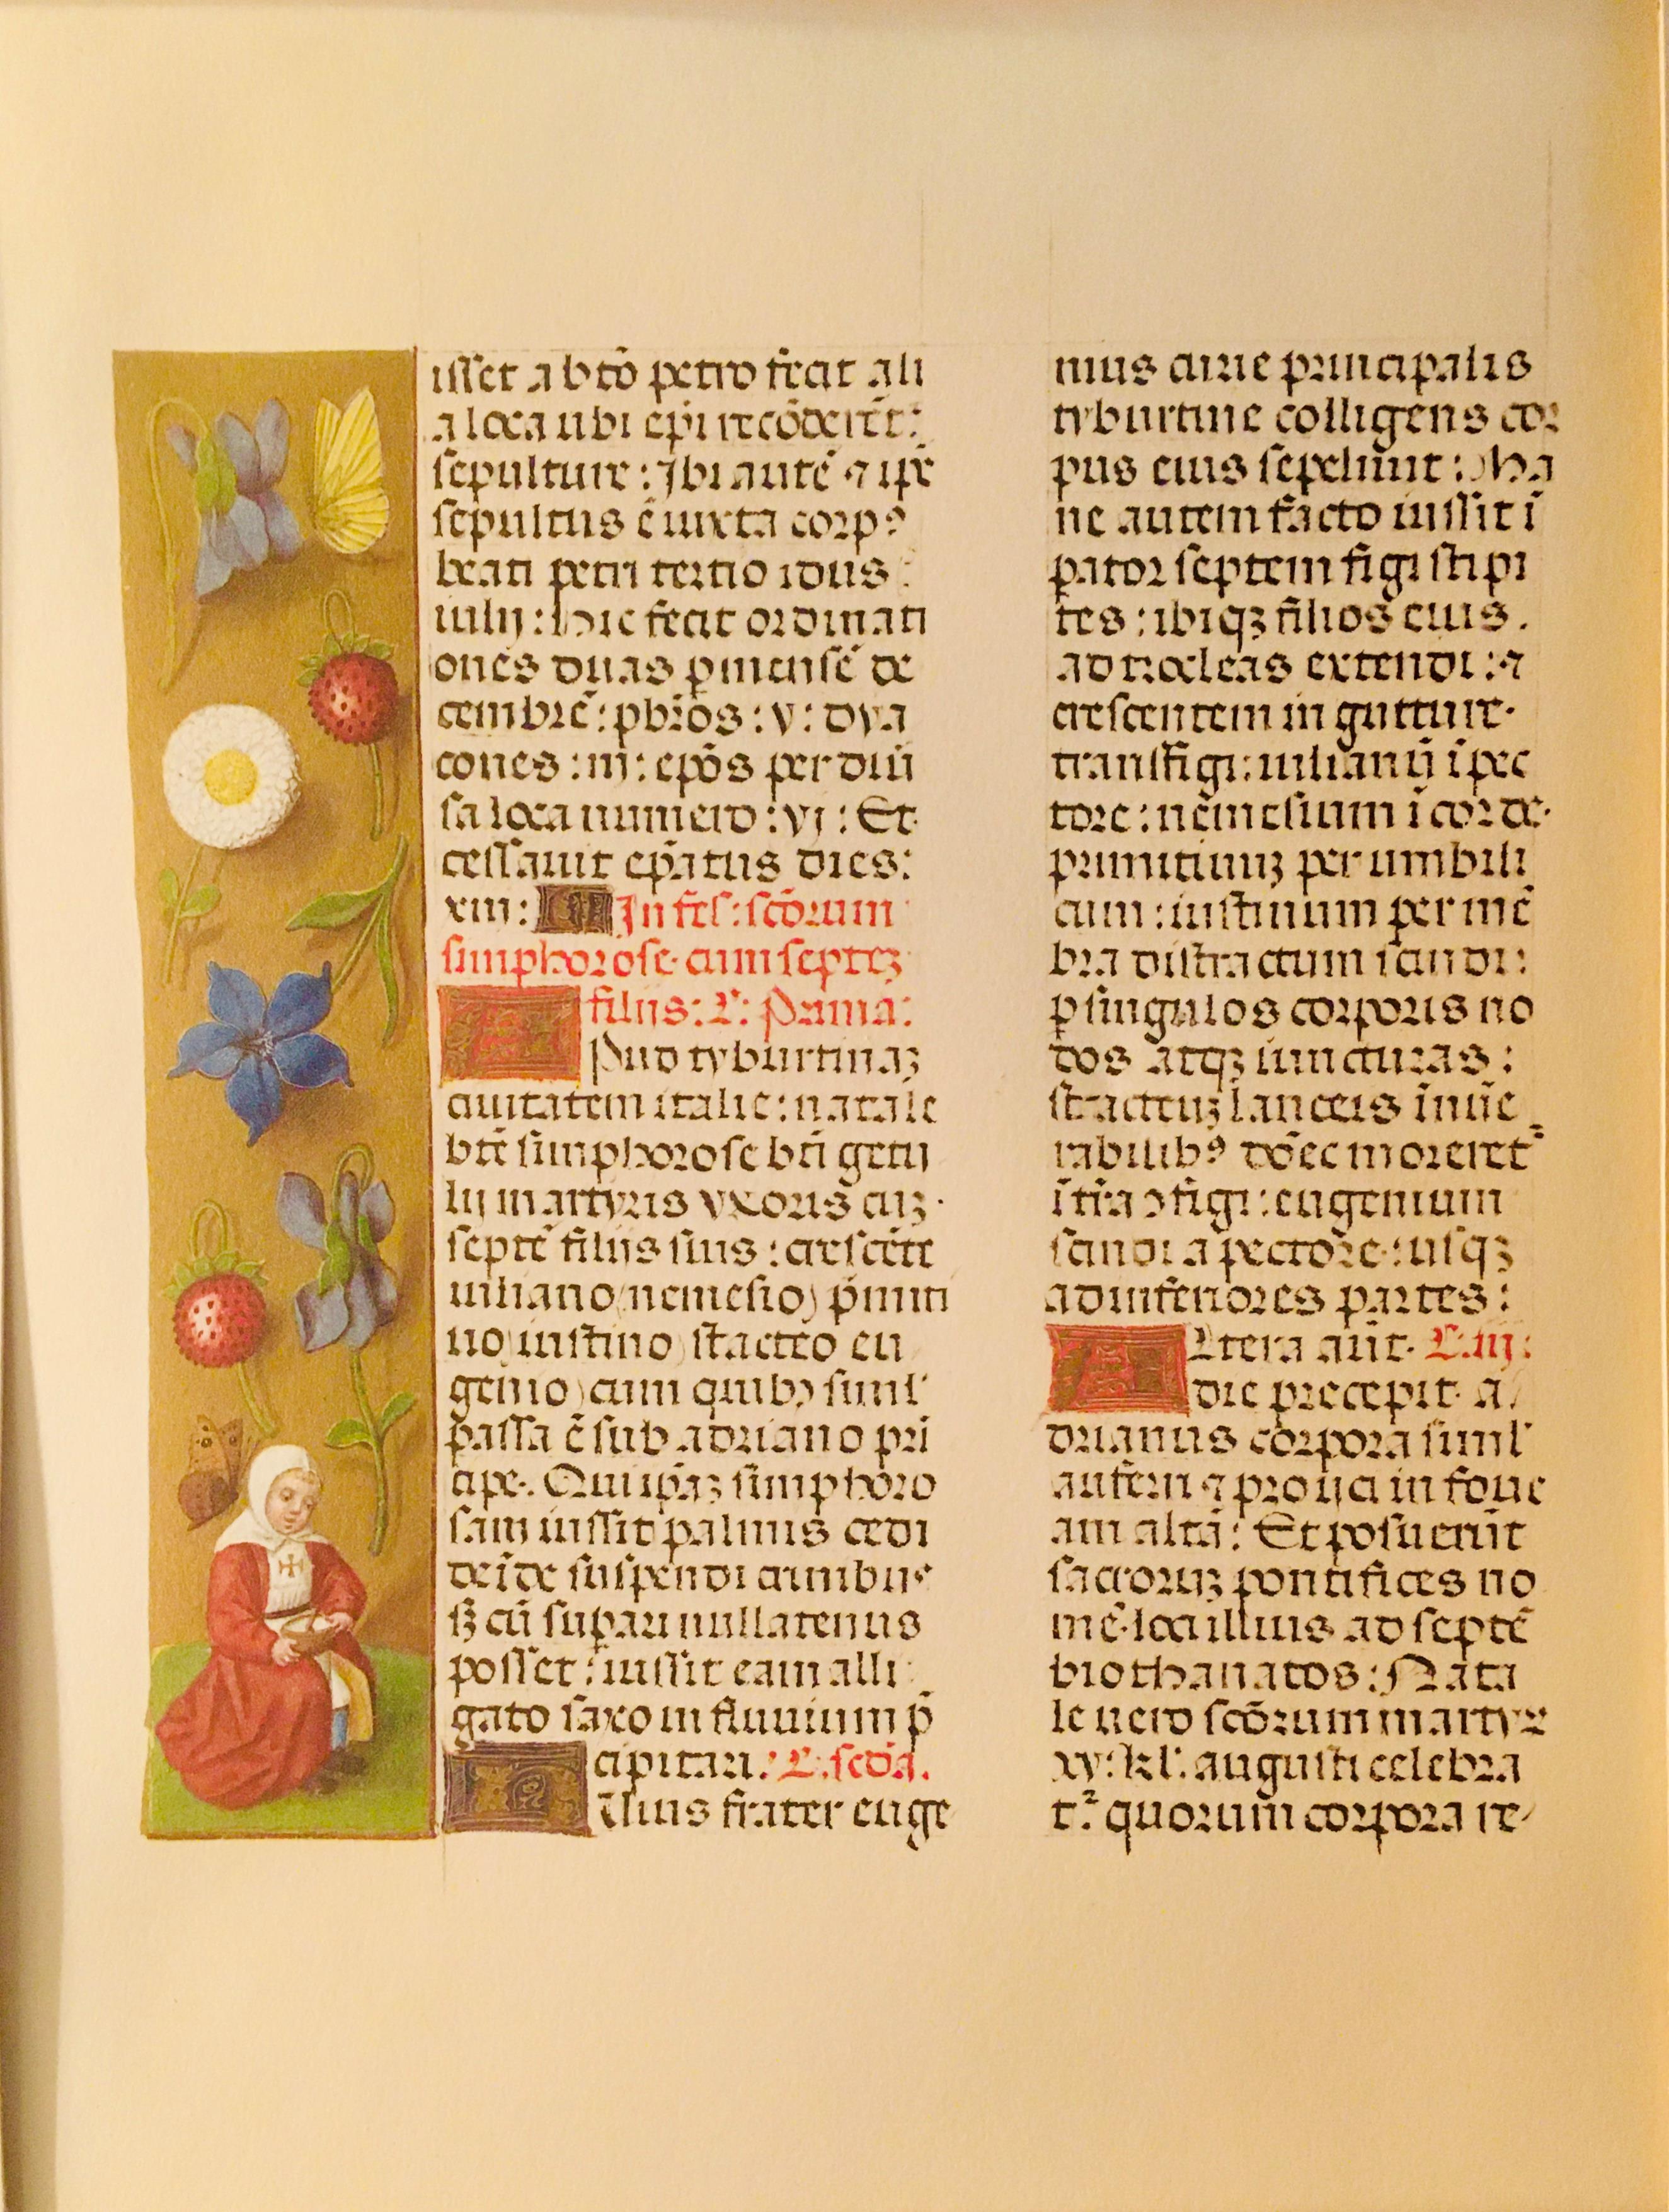 isset a btō petro fecit ali
a loca ubi ep̄i recōderēt:
sepulture: Ibi autē ⁊ ip̄e
sepultus ē iuxta corpꝰ
beati petri tertio idus
iulij: Hic fecit ordinati
ones duas p̱ mensē de
cembrē: pb̄ros: v: dya
cones: iij: ep̄os per diū
sa loca numero: vj: Et
cessauit ep̄atus dies:
xiii: In fes: scōrum
simphorose cum septeꝫ
filijs: L: Prima:
Apud tyburtinaꝫ
ciuitatem italie: natale
btē simphorose bt̄i getu
lij martyris vxoris eiꝫ
septē filijs suis: crescēte
iuliano nemesio p̄miti
no iustino stacteo eu
genio cum quibꝫ simľ
passa ē sub adriano prī
cipe. Qui ip̄aꝫ simphoro
sam iussit palmis cedi
deīde suspendi crinibus
sꝫ cū supari nullatenus
posset: iussit eam alli
gato saxo in fluuium p̄
cipitari. L. scd̄a.
Cuius frater euge
nius ciuie principalis
tyburtine colligens cor
pus eius sepeliuit: Ma
ne autem facto iussit ī
pator septem figi stipi
tes: ibiqꝫ filios eius.
ad trocleas extendi: ⁊
crescentem in gutture
transfigi: iulianū ī pec
tore: nēmesium ī corde
primitiuuꝫ per umbili
cum: iustinum per mē
bra distractum scindi:
p̱ singulos corporis no
dos atqꝫ iuncturas:
stacteuꝫ lanceis īnūe
rabilibꝰ dōec moreret᷑
ī tr̄a ɔfigi: eugenium
scindi a pectore: usqꝫ
ad inferiores partes:
Altera aūt. L. iij:
die precepit a
drianus corpora simľ
auferri ⁊ proijci in foue
am altā: Et posuerūt
sacroruꝫ pontifices no
mē loci illius ad septē
biothanatos: Nata
le uero scōrum martyr
xv: kľ: augusti celebra
t᷑ quorum corpora re